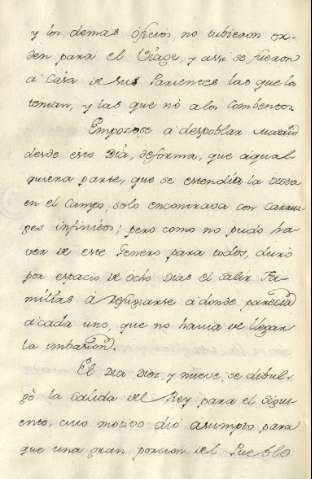 y los demas oficios no tubieron or-
den para el Viage, y assi se fueron
a Casa de sus Parientes las que la
tenian, y las que no a los Combentos.
Empezose a despoblar Madrid
desde este Dia, deforma, que aiqual
quiera parte, que se estendiese la Vista
en el Campo, solo encontrava con Carrua-
ges infinitos; pero como no pudo ha-
ver de este genero para todos, duró
por espacio de ocho Dias el salir Fa-
milias á refugiarse adonde parecia
acada uno, que no havia de llegar
la imbasion.
El Dia Diez, y nueve, se dibul-
gò la salida del Rey para el siguie-
ente, cuio motivo dio asumpto, para
que una gran porcion del Pueblo